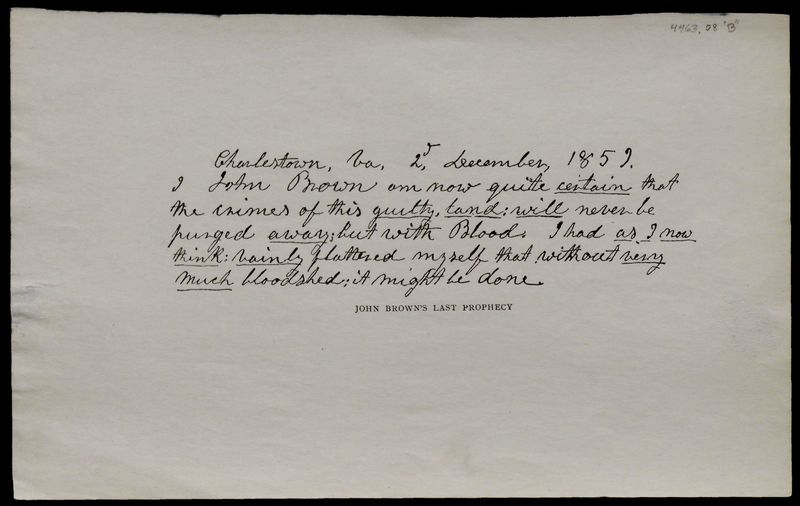 4463.08 "B"
Charlestown, Va, 2d, December, 1859.
I John Brown am now quite certain that
the crimes of this guilty, land: will never be
purged away; but with Blood. I had as I now
think: vainly flattered myself that without very
much bloodshed; it might be done.
JOHN BROWN'S LAST PROPHECY